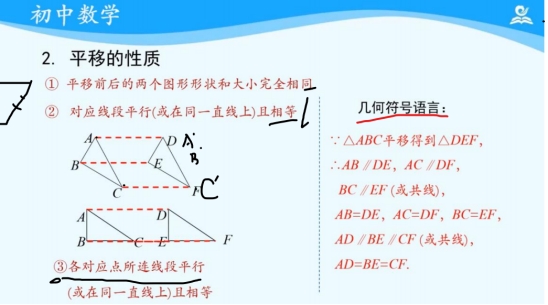 初中数学
2. 平移的性质
① 平移前后的两个图形形状和大小完全相同
② 对应线段平行(或在同一直线上)且相等
A D A'
B E B
C F C'
A D
B C E F
③各对应点所连线段平行
(或在同一直线上)且相等
几何符号语言:
∵△ABC平移得到△DEF,
∴AB∥DE, AC∥DF,
BC∥EF(或共线),
AB=DE, AC=DF, BC=EF,
AD∥BE∥CF(或共线),
AD=BE=CF.